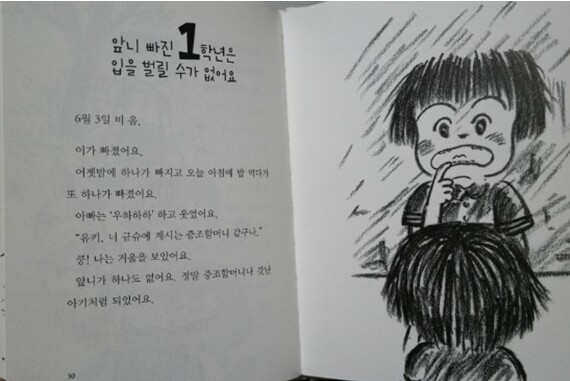 앞니 빠진 1학년은
입을 벌릴 수가 없어요
6월 3일 비 옴.
이가 빠졌어요.
어젯밤에 하나가 빠지고 오늘 아침에 밥 먹다가
또 하나가 빠졌어요.
아빠는 ‘우하하하’ 하고 웃었어요.
“유키, 너 큐슈에 계시는 증조할머니 같구나.”
쿵! 나는 거울을 보았어요.
앞니가 하나도 없어요. 정말 증조할머니나 갓난
아기처럼 되었어요.
30